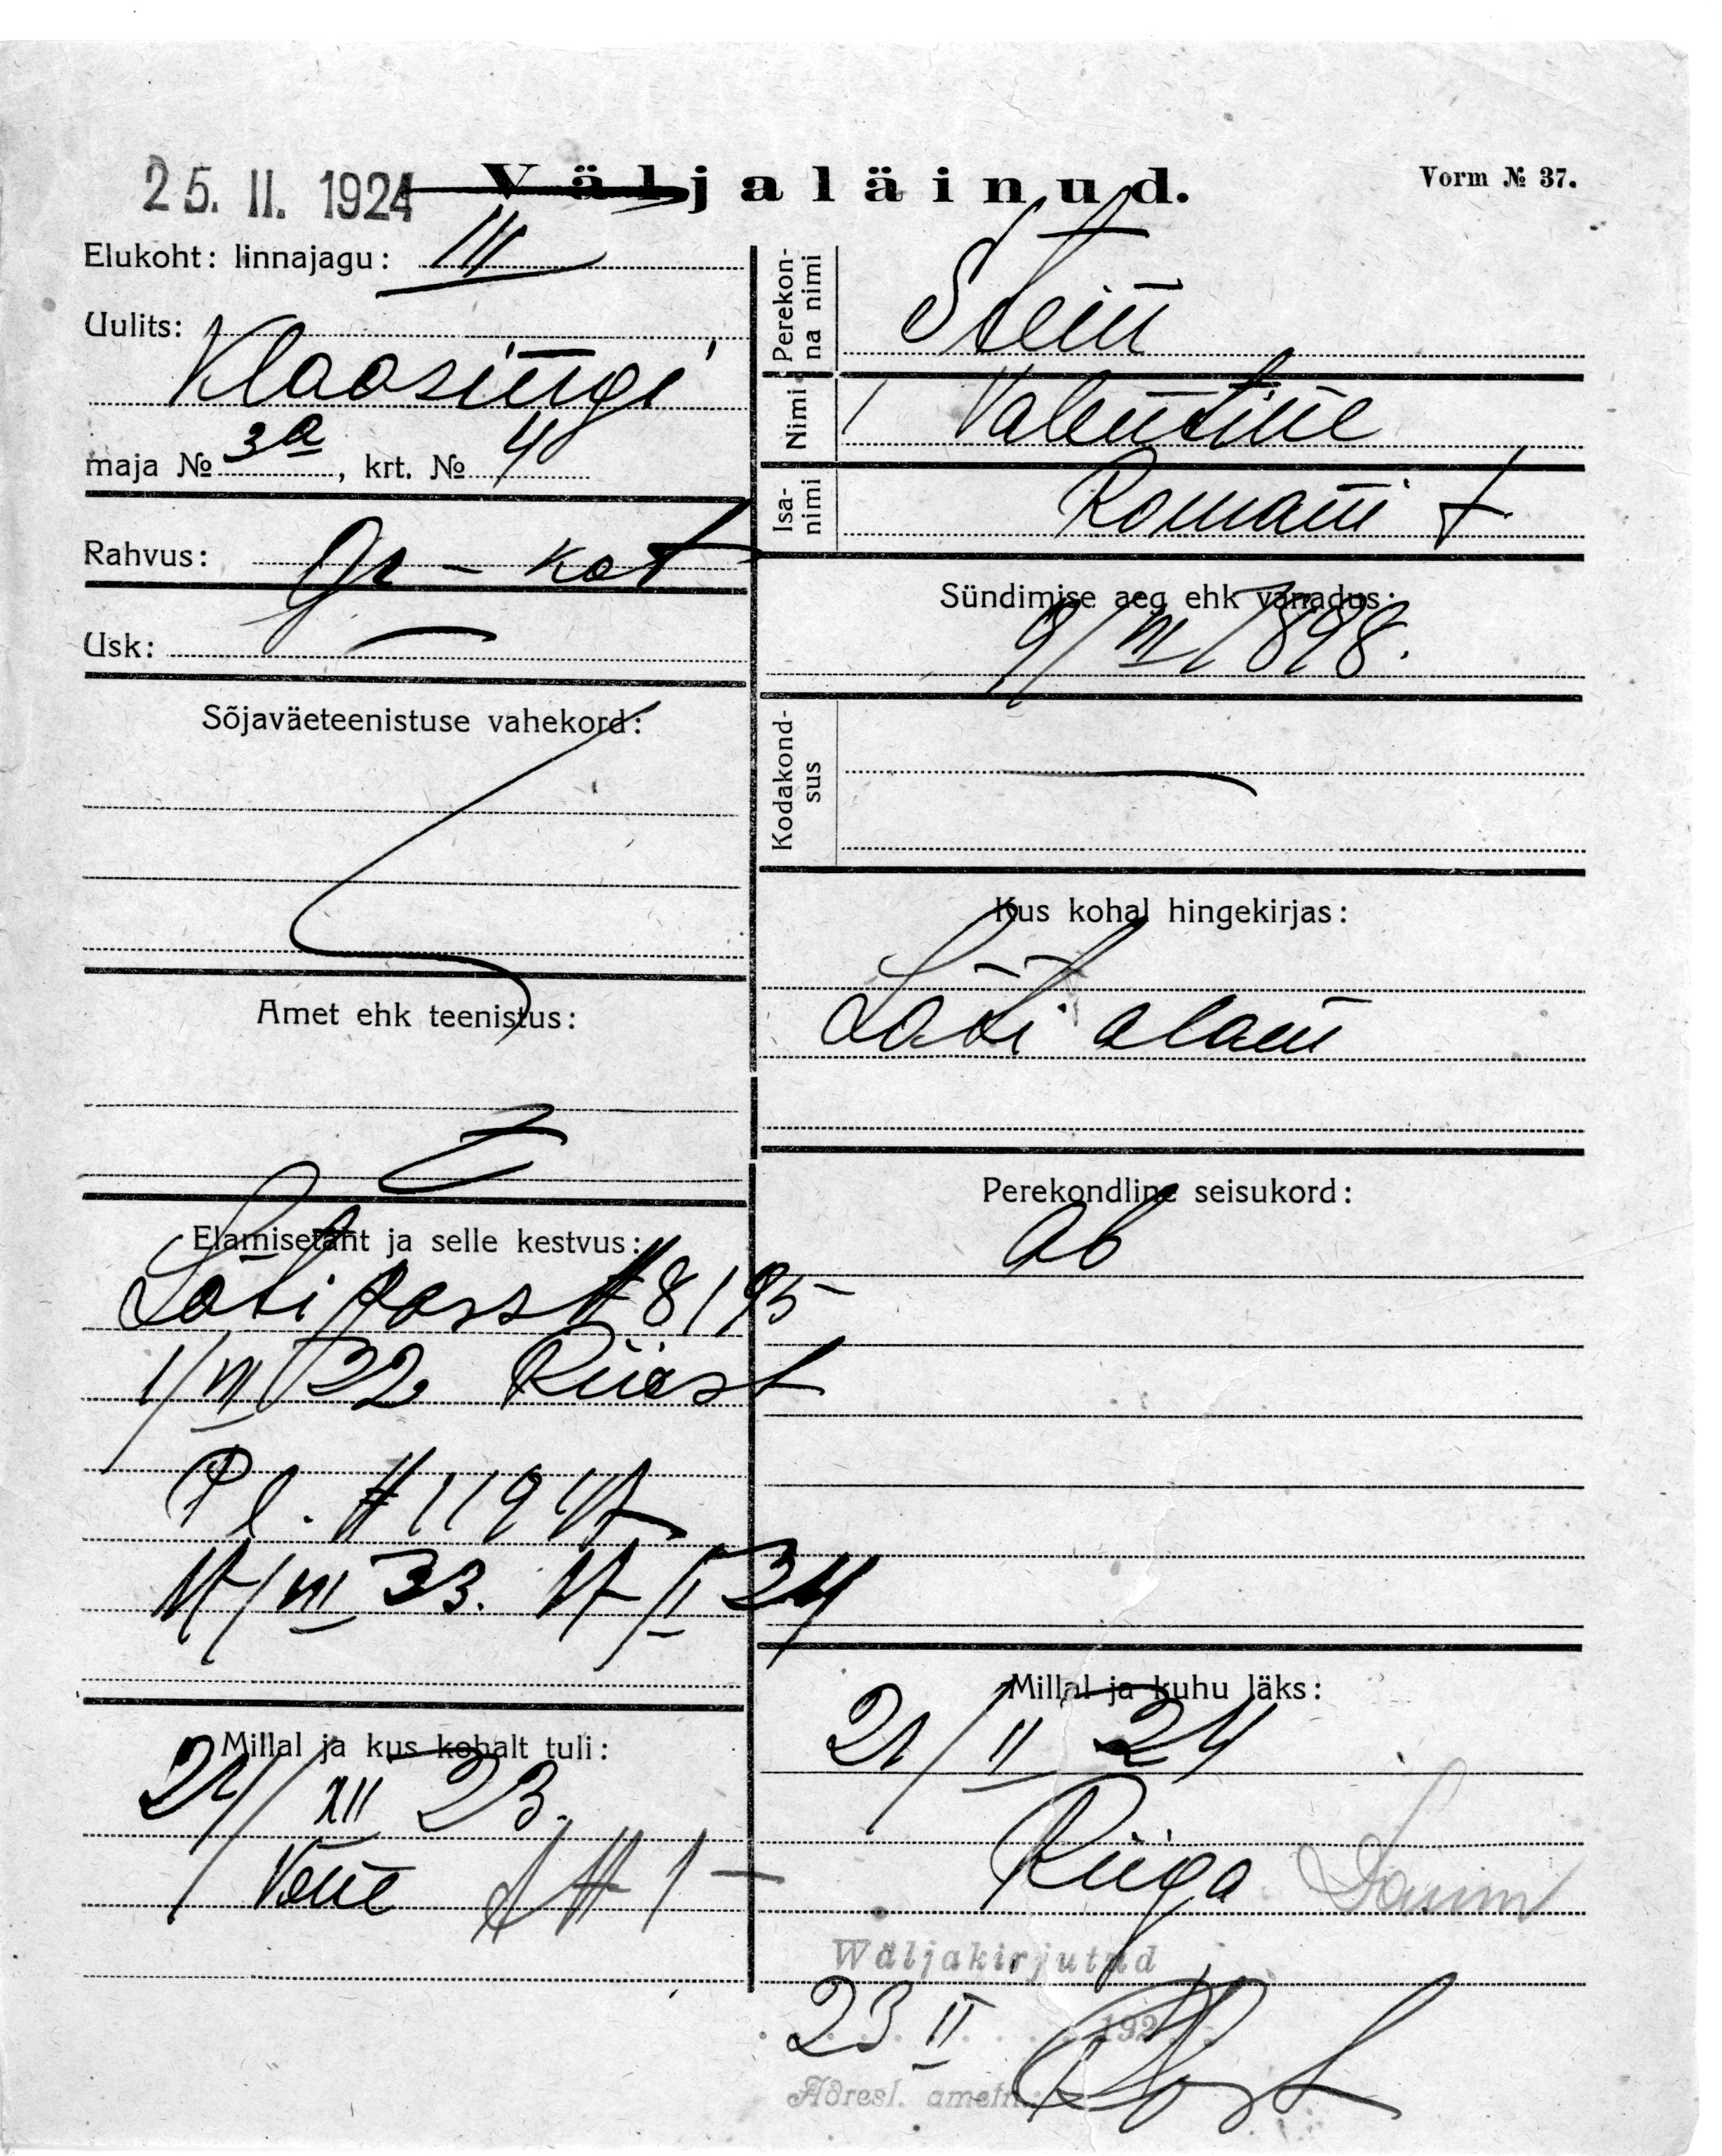 25. II. 1924 Väljaläinud. Vorm № 37.
Elukoht: linnajagu: III
Uulits:
Klaosingi
maja № 3a, krt. № 4
Rahvus: Gr - kat
Usk: —
Sõjaväeteenistuse vahekord:
Amet ehk teenistus:
Elamisetäht ja selle kestvus:
Läti pass # 8195
1/VII 22 Riiast
Pl. #
Millal ja kus kohalt tuli:
24/XII 23.
Vene # 1
Perekonna nimi Stein
Nimi Valentine
Isanimi Romani †
Sündimise aeg ehk vanadus:
9/VII 1898.
Kodakondsus —
Kus kohal hingekirjas:
Läti alam
Perekondline seisukord:
ab
Millal ja kuhu läks:
21/II 24
Riiga
Wäljakirjutud
23 II 192
Adresl. ametn.: